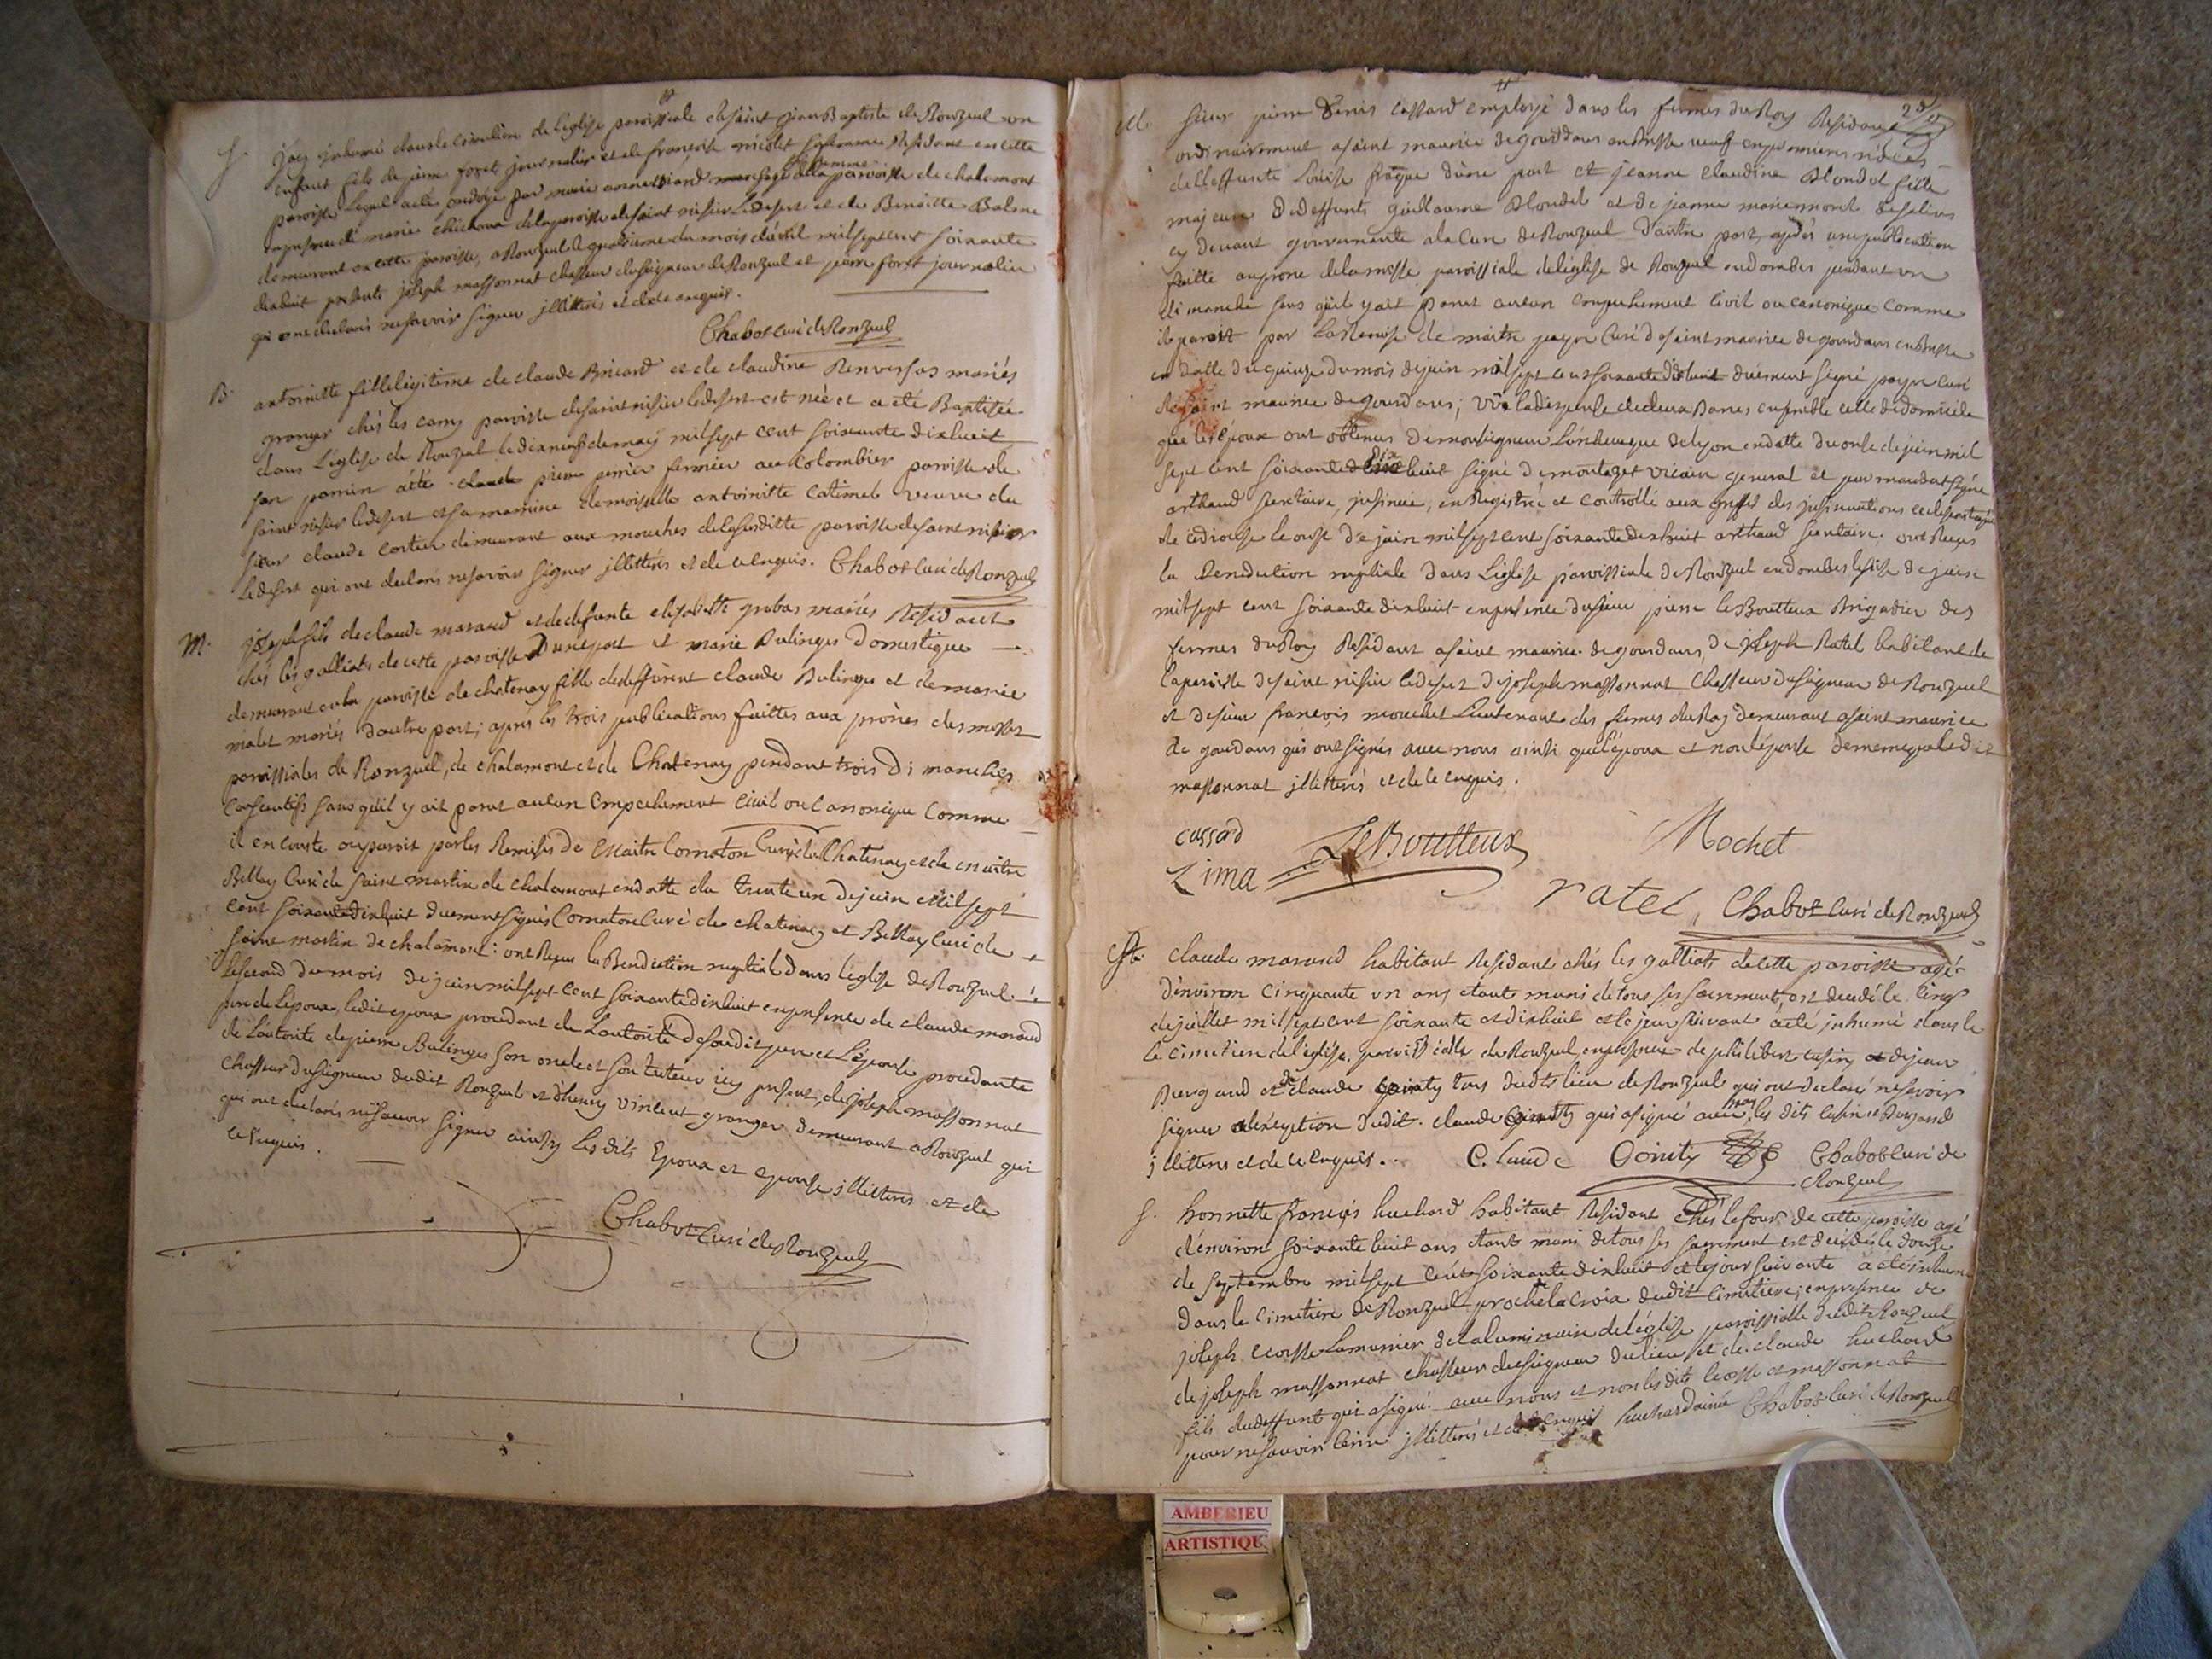 S. j'ay inhumé dans le cimetiere de l'eglise paroissiale de saint jean Baptiste de Ronzuel un
enfant fils de pierre foret journalier et de françoise nicolet sa femme Residant en cette
paroisse lequel a été ondoyé par marie sage femme de la paroisse de chalamont
en presence de marie de la paroisse de saint nisier le desert et de Benoitte
demeurant en cette paroisse, a Ronzuel le quatrieme du mois d'avril mil sept cent soixante
dixhuit presents joseph massonnat chasseur du seigneur de Ronzuel et pierre foret journalier
qui ont declarés ne savoir signer jllitterés et de ce enquis.
Chabot curé de Ronzuel
B. antoinette fille legitime de claude Bricard et de claudine Renversas mariés
granger chés les cams paroisse de saint nisier le desert est née et a été Baptisée
dans l'eglise de Ronzuel le dixneuf de may mil sept cent soixante dixhuit
son parrin a été pierre perrier fermier au colombier paroisse de
saint nisier le desert et sa marrine demoiselle antoinette catimel veuve du
sieur claude cortier demeurant aux mouches de la susditte paroisse de saint nisier
le desert qui ont declarés ne savoir signer jllitterés et de ce enquis. Chabot curé de Ronzuel
M. joseph fils de claude marand et de defunte elisabeth grobas mariés Residant
chés les galliats de cette paroisse D'une part et marie Bulinges Domestique
demeurant en la paroisse de chatenay fille de deffunt claude Bulinges et de marie
malet mariés d'autre part; après les trois publications faittes aux prônes des messes
paroissiales de Ronzuel, de chalamont et de Chatenay pendant trois dimanches
consecutifs sans qu'il y ait parut aucun Empechement Civil ou Canonique Comme
il en conste ou paroit par les Remises de Maitre Comaton Curé de Chatenay et de maitre
Bellay Curé de saint martin de chalamont en datte du trente un de juin Mil sept
cent soixante dixhuit duement signés Comaton curé de chatenay et Bellay curé de
saint martin de chalamont: ont Reçus la Benediction nuptiale dans l'eglise de Ronzuel
le second du mois de juin mil sept cent soixante dixhuit en presence de claude marand
pere de l'epoux, ledit epoux procedant de L'autorité de son dit pere et L'épouse procedante
de l'autorité de pierre Bulinges son oncle et son tuteur icy present, de joseph massonnat
chasseur du seigneur dudit Ronzuel et d'henry vincent granger demeurant a Ronzuel qui
qui ont declarés ne savoir signer ainsy les dits Epoux et epouse jllitterés et de
ce enquis.
Chabot Curé de Ronzuel
M. sieur pierre Denis cassard employé dans les fermes du Roy Residant
ordinairement a saint maurice de gourdans en Bresse veuf en premieres nôces
de deffunte Louise d'une part et jeanne claudine Blondel fille
majeure de deffunts guillaume Blondel et de jeanne
cy devant gouvernante a la Cure de Ronzuel D'autre part, après une publication
faitte au prone de la messe paroissiale de l'église de Ronzuel en dombes pendant un
dimanche sans qu'il y ait parut aucun empechement civil ou canonique comme
il paroit par la Remise de maitre payre Curé de saint maurice de gourdans en Bresse
en datte du quinze du mois de juin mil sept cent soixante dixhuit duement signé payre curé
de saint maurice de gourdans; vû la dispense de deux Banes ensemble celle de domicile
que les époux ont obtenus De monseigneur L'archeveque de lyon en datte du onse de juin mil
sept cent soixante dix huit signé De montazet vicaire general et par mandat signé
arthaud secretaire, jnsinuée, enRegistrée et controllé aux greffes des jnsinuations ecclesiastiques
de ce diocese le onse de juin mil sept cent soixante dixhuit arthaud secretaire. ont Reçus
la Benediction nuptiale dans l'église paroissiale de Ronzuel en dombes le seise de juin
mil sept cent soixante dixhuit en presence du sieur pierre le Boutteux Brigadier des
fermes du Roy Residant a saint maurice de gourdans, de joseph Ratel habitant de
la paroisse de saint nisier le desert de joseph massonnat Chasseur du seigneur de Ronzuel
et de sieur françois mouchet Lieutenant des fermes du Roy demeurant a saint maurice
de gourdans qui ont signés avec nous ainsi que l'époux et non l'épouse de meme que ledit
massonnat jllitterés et de ce enquis.
cassard LeBoutteux Mochet
Lima ratel Chabot curé de Ronzuel
St. claude marand habitant Residant chés les galliats de cette paroisse agé
d'environ Cinquante un ans etant muni de tous ses sacrements, est decedé le Cinq
de juillet mil sept cent soixante et dixhuit et le jour suivant a été inhumé dans le
le cimetiere de l'église paroissialle de Ronzuel, en presence de philibert cusin et de jean
Burgand et de claude goinity tous dudit lieu de Ronzuel qui ont declaré ne savoir
signer a l'éxception dudit claude goinity qui a signé avec nous les dits cusin et Burgand
jllitterés et de ce enquis. Claude Goinity Chabot Curé de
Ronzuel
S. honnette françois huchard habitant Residant chés lafour de cette paroisse agé
d'environ soixante huit ans etant muni de tous ses sacrement est decedé le douze
de septembre mil sept cent soixante dixhuit et le jour suivant a été inhumé
dans le cimetiere de Ronzuel proche la croix dudit cimetiere; en presence de
joseph ecosse Lamanier de la luminaire de l'église paroissialle dudit Ronzuel
de joseph massonnat chasseur du seigneur du lieu et de claude huchard
fils du deffunt qui a signé avec nous et non les dits lecosse et massonnat
pour ne savoir écrire jllitterés et de ce enquis huchard ainé Chabot curé de Ronzuel
AMBERIEU
ARTISTIQU